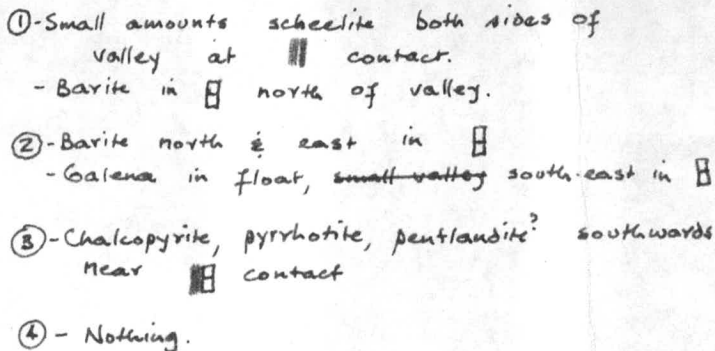 ①-Small amounts scheelite both sides of
valley at contact.
- Barite in north of valley.
②-Barite north & east in
-Galena in float, small valley south-east in
③-Chalcopyrite, pyrrhotite, pentlandite? southwards
near contact
④- Nothing.